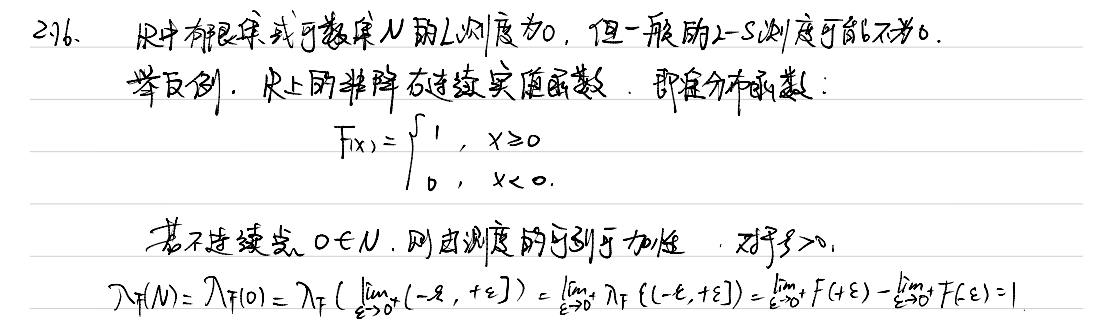 2.16. R中有限集或可数集N的L测度为0，但一般的L-S测度可能不为0.
举反例. R上的非降右连续实值函数. 即准分布函数:
F(x) = { 1 , x≥0
0 , x<0.
若不连续点 0∈N. 则由测度的可列可加性. 对于ε>0,
λF(N) = λF(0) = λF( lim ε→0+ (-ε, +ε] ) = lim ε→0+ λF{(-ε, +ε]} = lim ε→0+ F(+ε) - lim ε→0+ F(-ε) = 1.